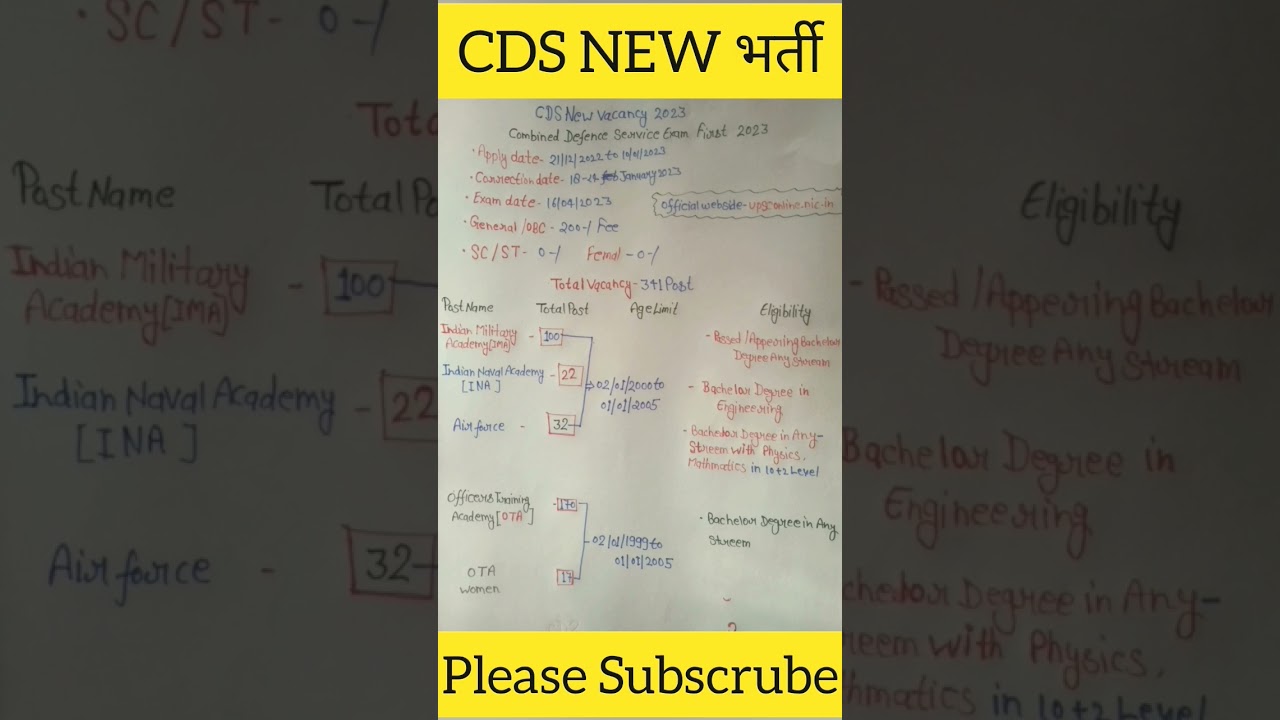 CDS NEW भर्ती
CDS New Vacancy 2023
Combined Defence Service Exam First 2023
• Apply date- 21/12/2022 to 10/01/2023
• Correction date- 18-24 January 2023
• Exam date- 16/04/2023
official webside- upsconline.nic.in
• General /OBC - 200-/ Fee
• SC/ST- 0-/ Femal -0-/
Total Vacancy- 341 Post
Post Name Total Post Age Limit Eligibility
Indian Military Academy [IMA] - 100 - Passed /Appearing Bachelor
Degree Any Stream
Indian Naval Academy - 22 - Bachelar Degree in
[INA] Engineering
02/01/2000 to
01/01/2005
Airforce - 32 - Bachelor Degree in Any-
Streem with Physics,
Mathmatics in 10+2 Level
Officers Training - 170
Academy [OTA] - Bachelar Degree in Any
Streem
02/01/1999 to
01/01/2005
OTA 17
women
Please Subscrube